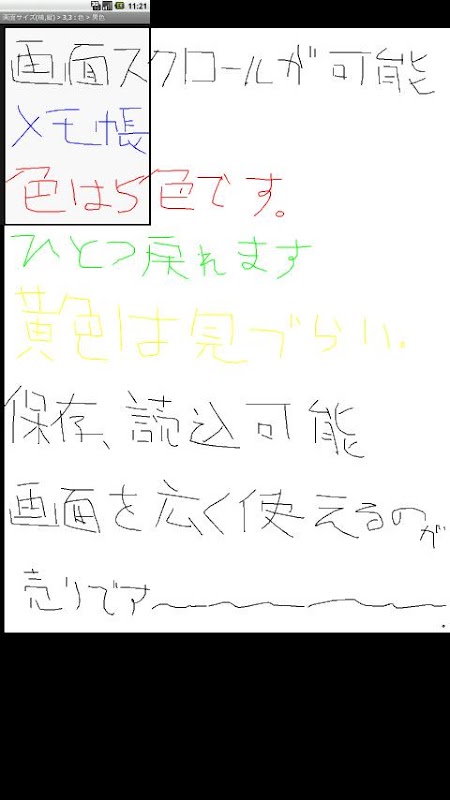 11:21
画面サイズ(横,縦) > 3,3 : 色 > 黄色
画面スクロールが可能
メモ帳
色は5色です。
ひとつ戻れます
黄色は見づらい。
保存、読込可能
画面を広く使えるのが
売りです